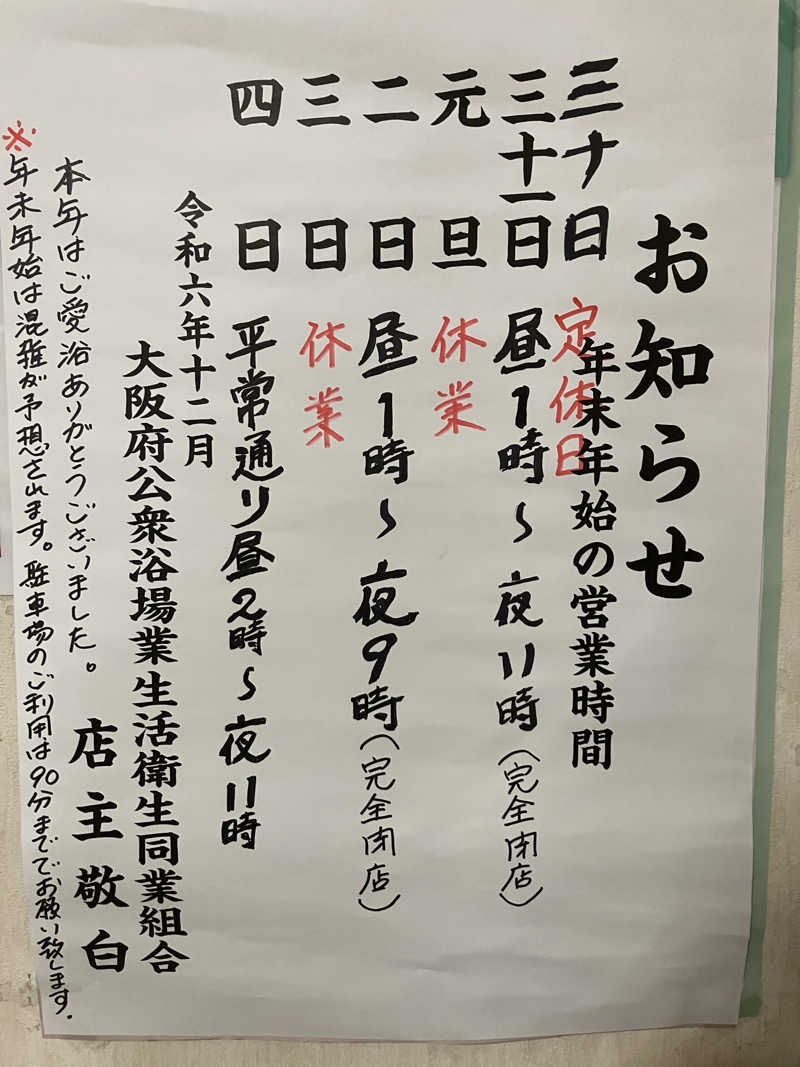 お知らせ
年末年始の営業時間
三十日 定休日
三十一日 昼1時～夜11時（完全閉店）
元旦 休業
二日 昼1時～夜9時（完全閉店）
三日 休業
四日 平常通り昼2時～夜11時
令和六年十二月
大阪府公衆浴場業生活衛生同業組合
店主敬白
本年はご愛浴ありがとうございました。
※年末年始は混雑が予想されます。駐車場のご利用は90分まででお願い致します。